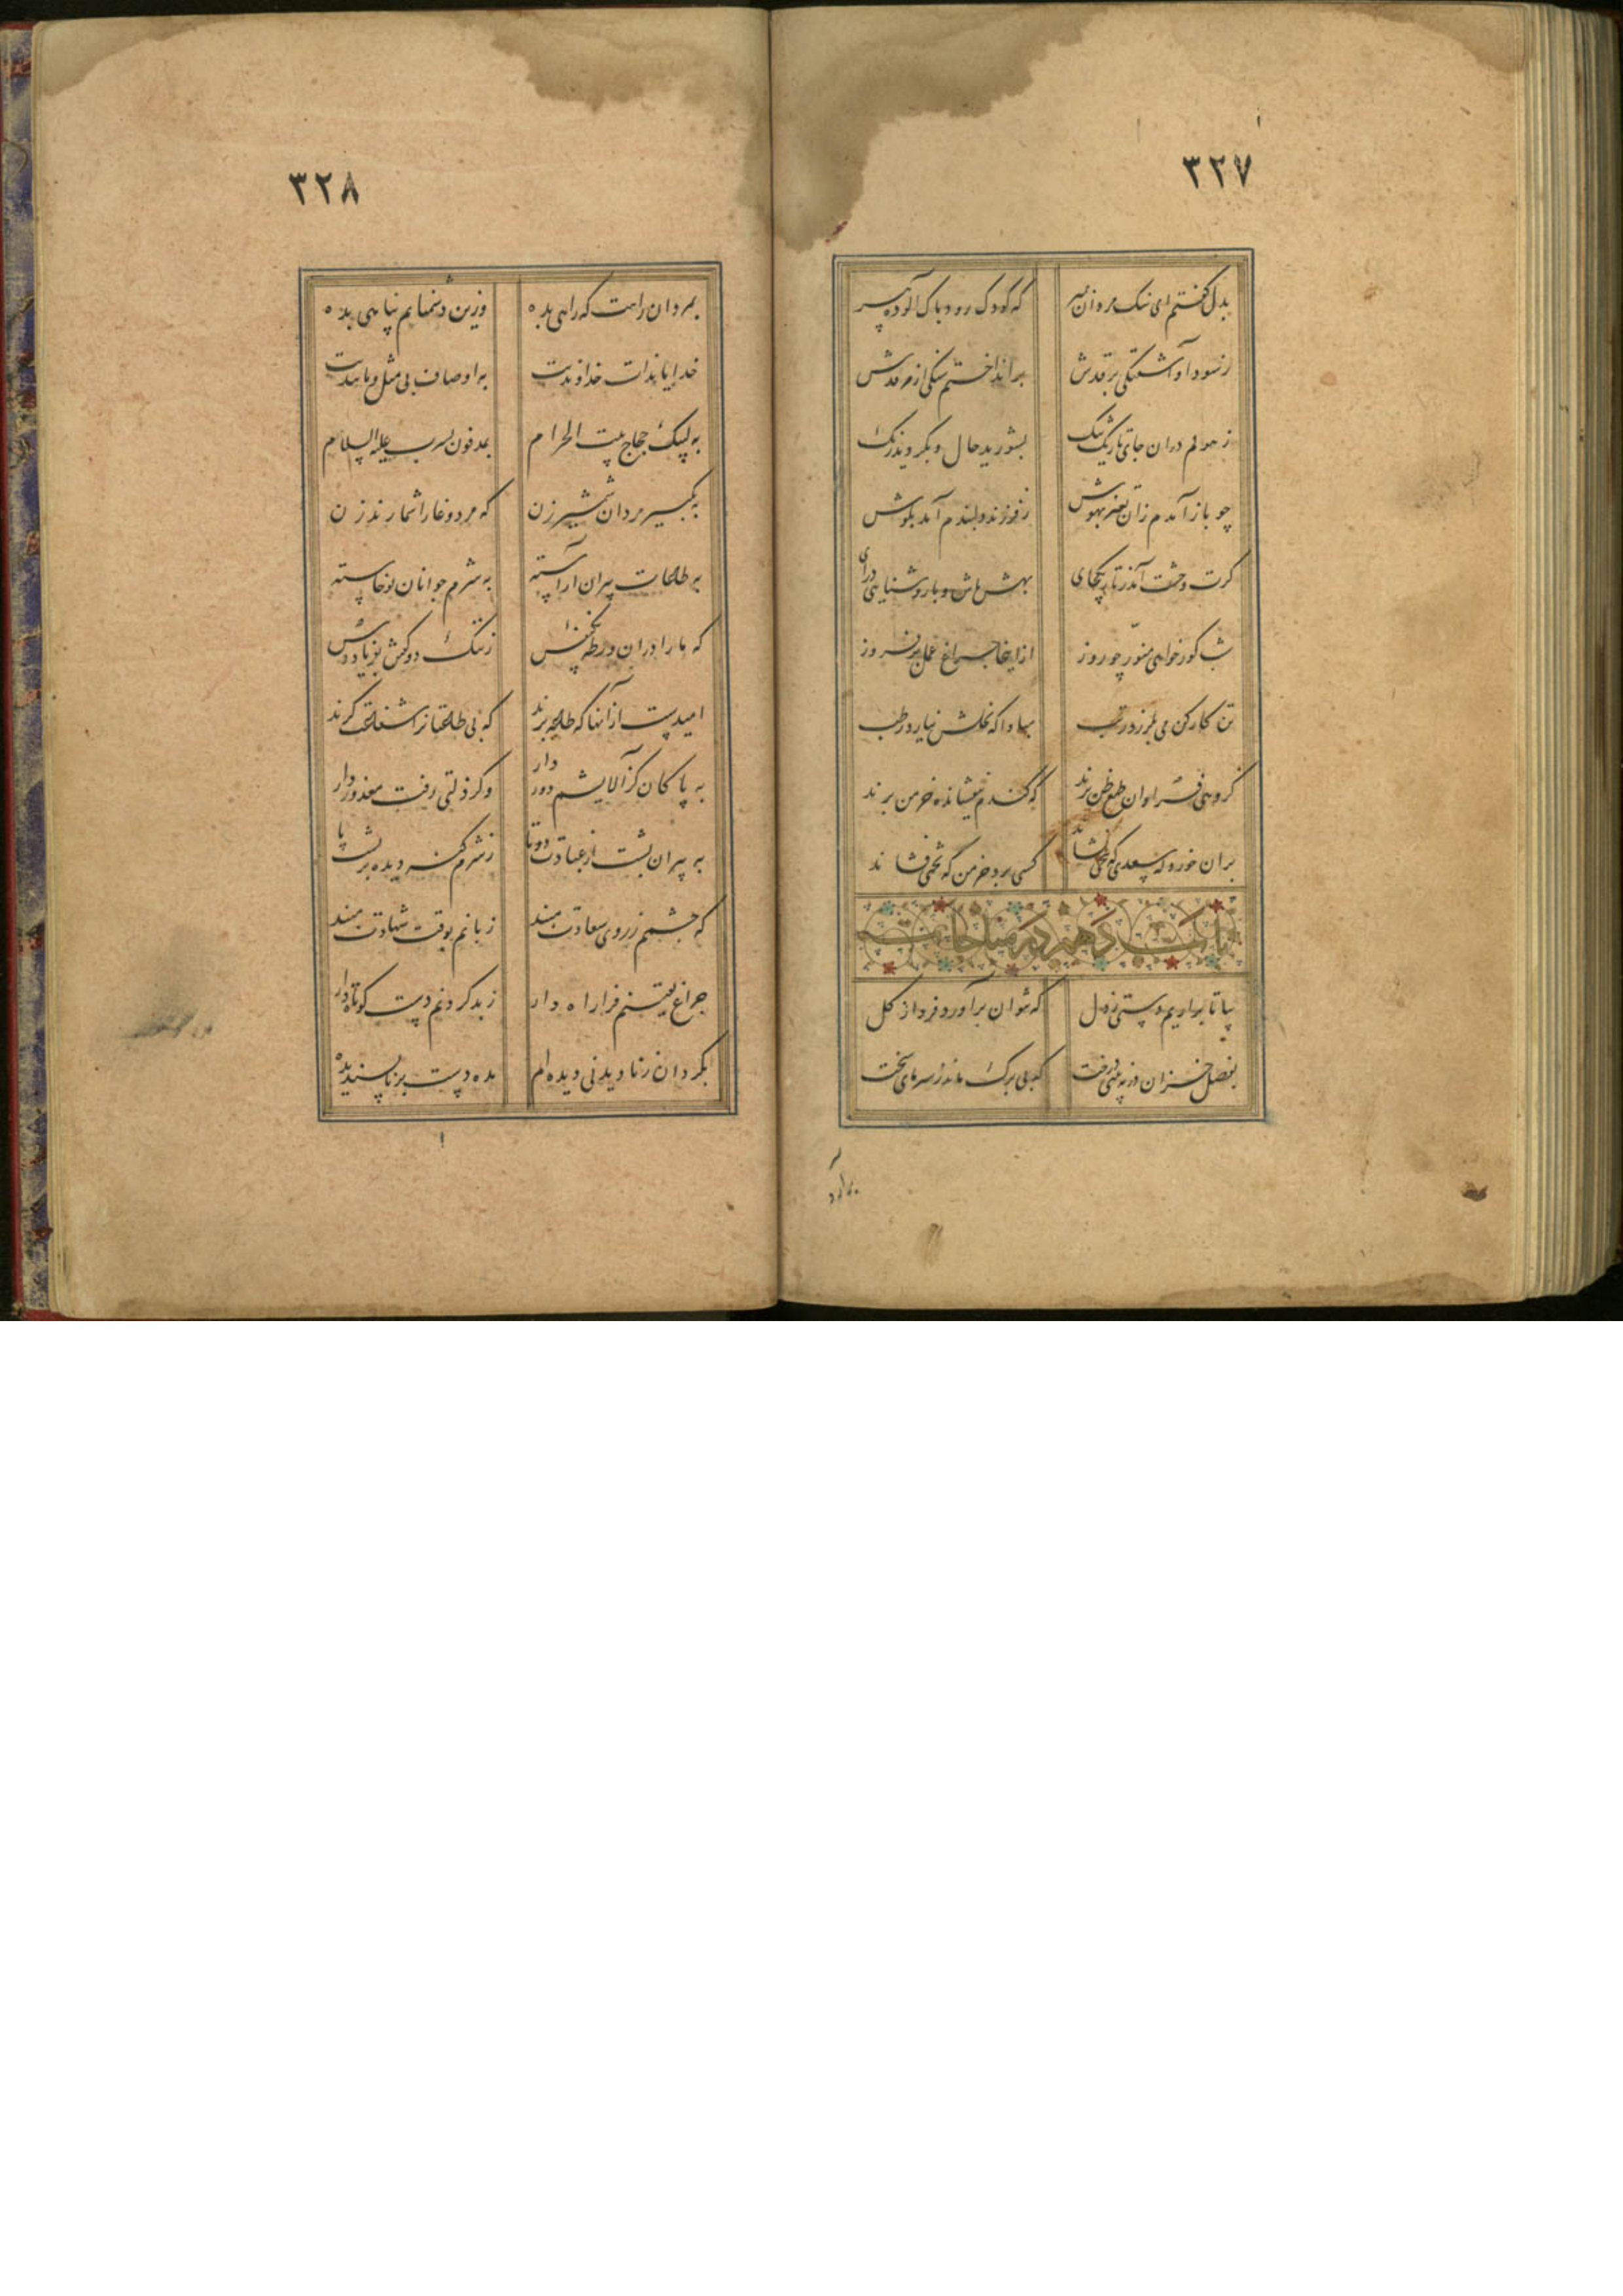 ۳۲۷
بدل گفتم ای ننگ مردان بمیر که کودک رود پاک و آلوده پیر
ز سودا و آشفتگی بر قدش برانداختم سنگی از مرقدش
ز هولم در آن جای تاریک تنگ بشورید حال و بگردید رنگ
چو باز آمدم زان تغیر بهوش ز فرزند دلبندم آمد بگوش
گرت وحشت آمد ز تاریک جای بهش باش و با روشنایی درآی
شب گور خواهی منور چو روز از اینجا چراغ عمل برفروز
تن کارکن می بلرزد ز تب مبادا که نخلش نیارد رطب
گروهی فراوان طمع ظن برند که گندم نیفشانده خرمن برند
بر آن خورد سعدی که بیخی نشاند کسی برد خرمن که تخمی فشاند
باب دهم در مناجات
بیا تا برآریم دستی ز دل که نتوان برآورد فردا ز گل
بفصل خزان در نه بینی درخت که بی برگ ماند ز سرمای سخت
برآرد
۳۲۸
بمردان راهت که راهی بده وزین دشمنانم پناهی بده
خدایا بذات خداوندیت به اوصاف بی مثل و مانندیت
به لبیک حجاج بیت الحرام بمدفون یثرب علیه السلام
به تکبیر مردان شمشیر زن که مرد وغا را شمارند زن
به طاعات پیران آراسته به شرم جوانان نوخاسته
که ما را در آن ورطه یک نفس ز ننگ دو گفتن بفریاد رس
امیدست از آنها که طاعت برند که بی طاعتانرا شفاعت کرند
به پاکان کز آلایشم دور دار وگر ذلتی رفت معذور دار
به پیران پشت از عبادت دوتا ز شرم گنه دیده بر پشت پا
که چشمم ز روی سعادت مبند زبانم بوقت شهادت مبند
چراغ یقینم فرا راه دار ز بد کردنم دست کوتاه دار
بگردان ز نادیدنی دیده ام مده دست بر ناپسندیده